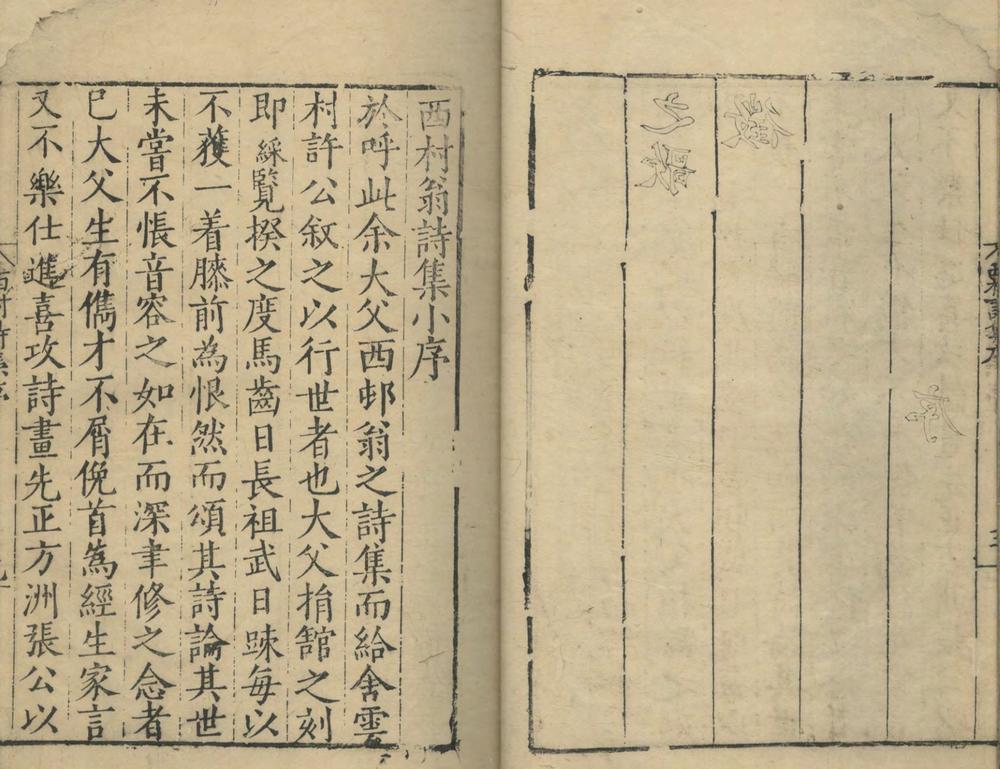 西村翁詩集小序
於呼此余大父西邨翁之詩集而給舍雲
村許公叙之以行世者也大父捐舘之刻
即綵覽揆之度馬齒日長祖武日踈每以
不獲一着膝前為恨然而頌其詩論其世
未嘗不悵音容之如在而深聿修之念者
已大父生有儁才不屑俛首為經生家言
又不樂仕進喜攻詩畫先正方洲張公以